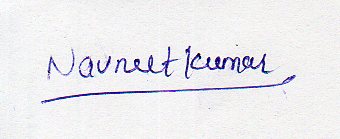 Navneet Kumar